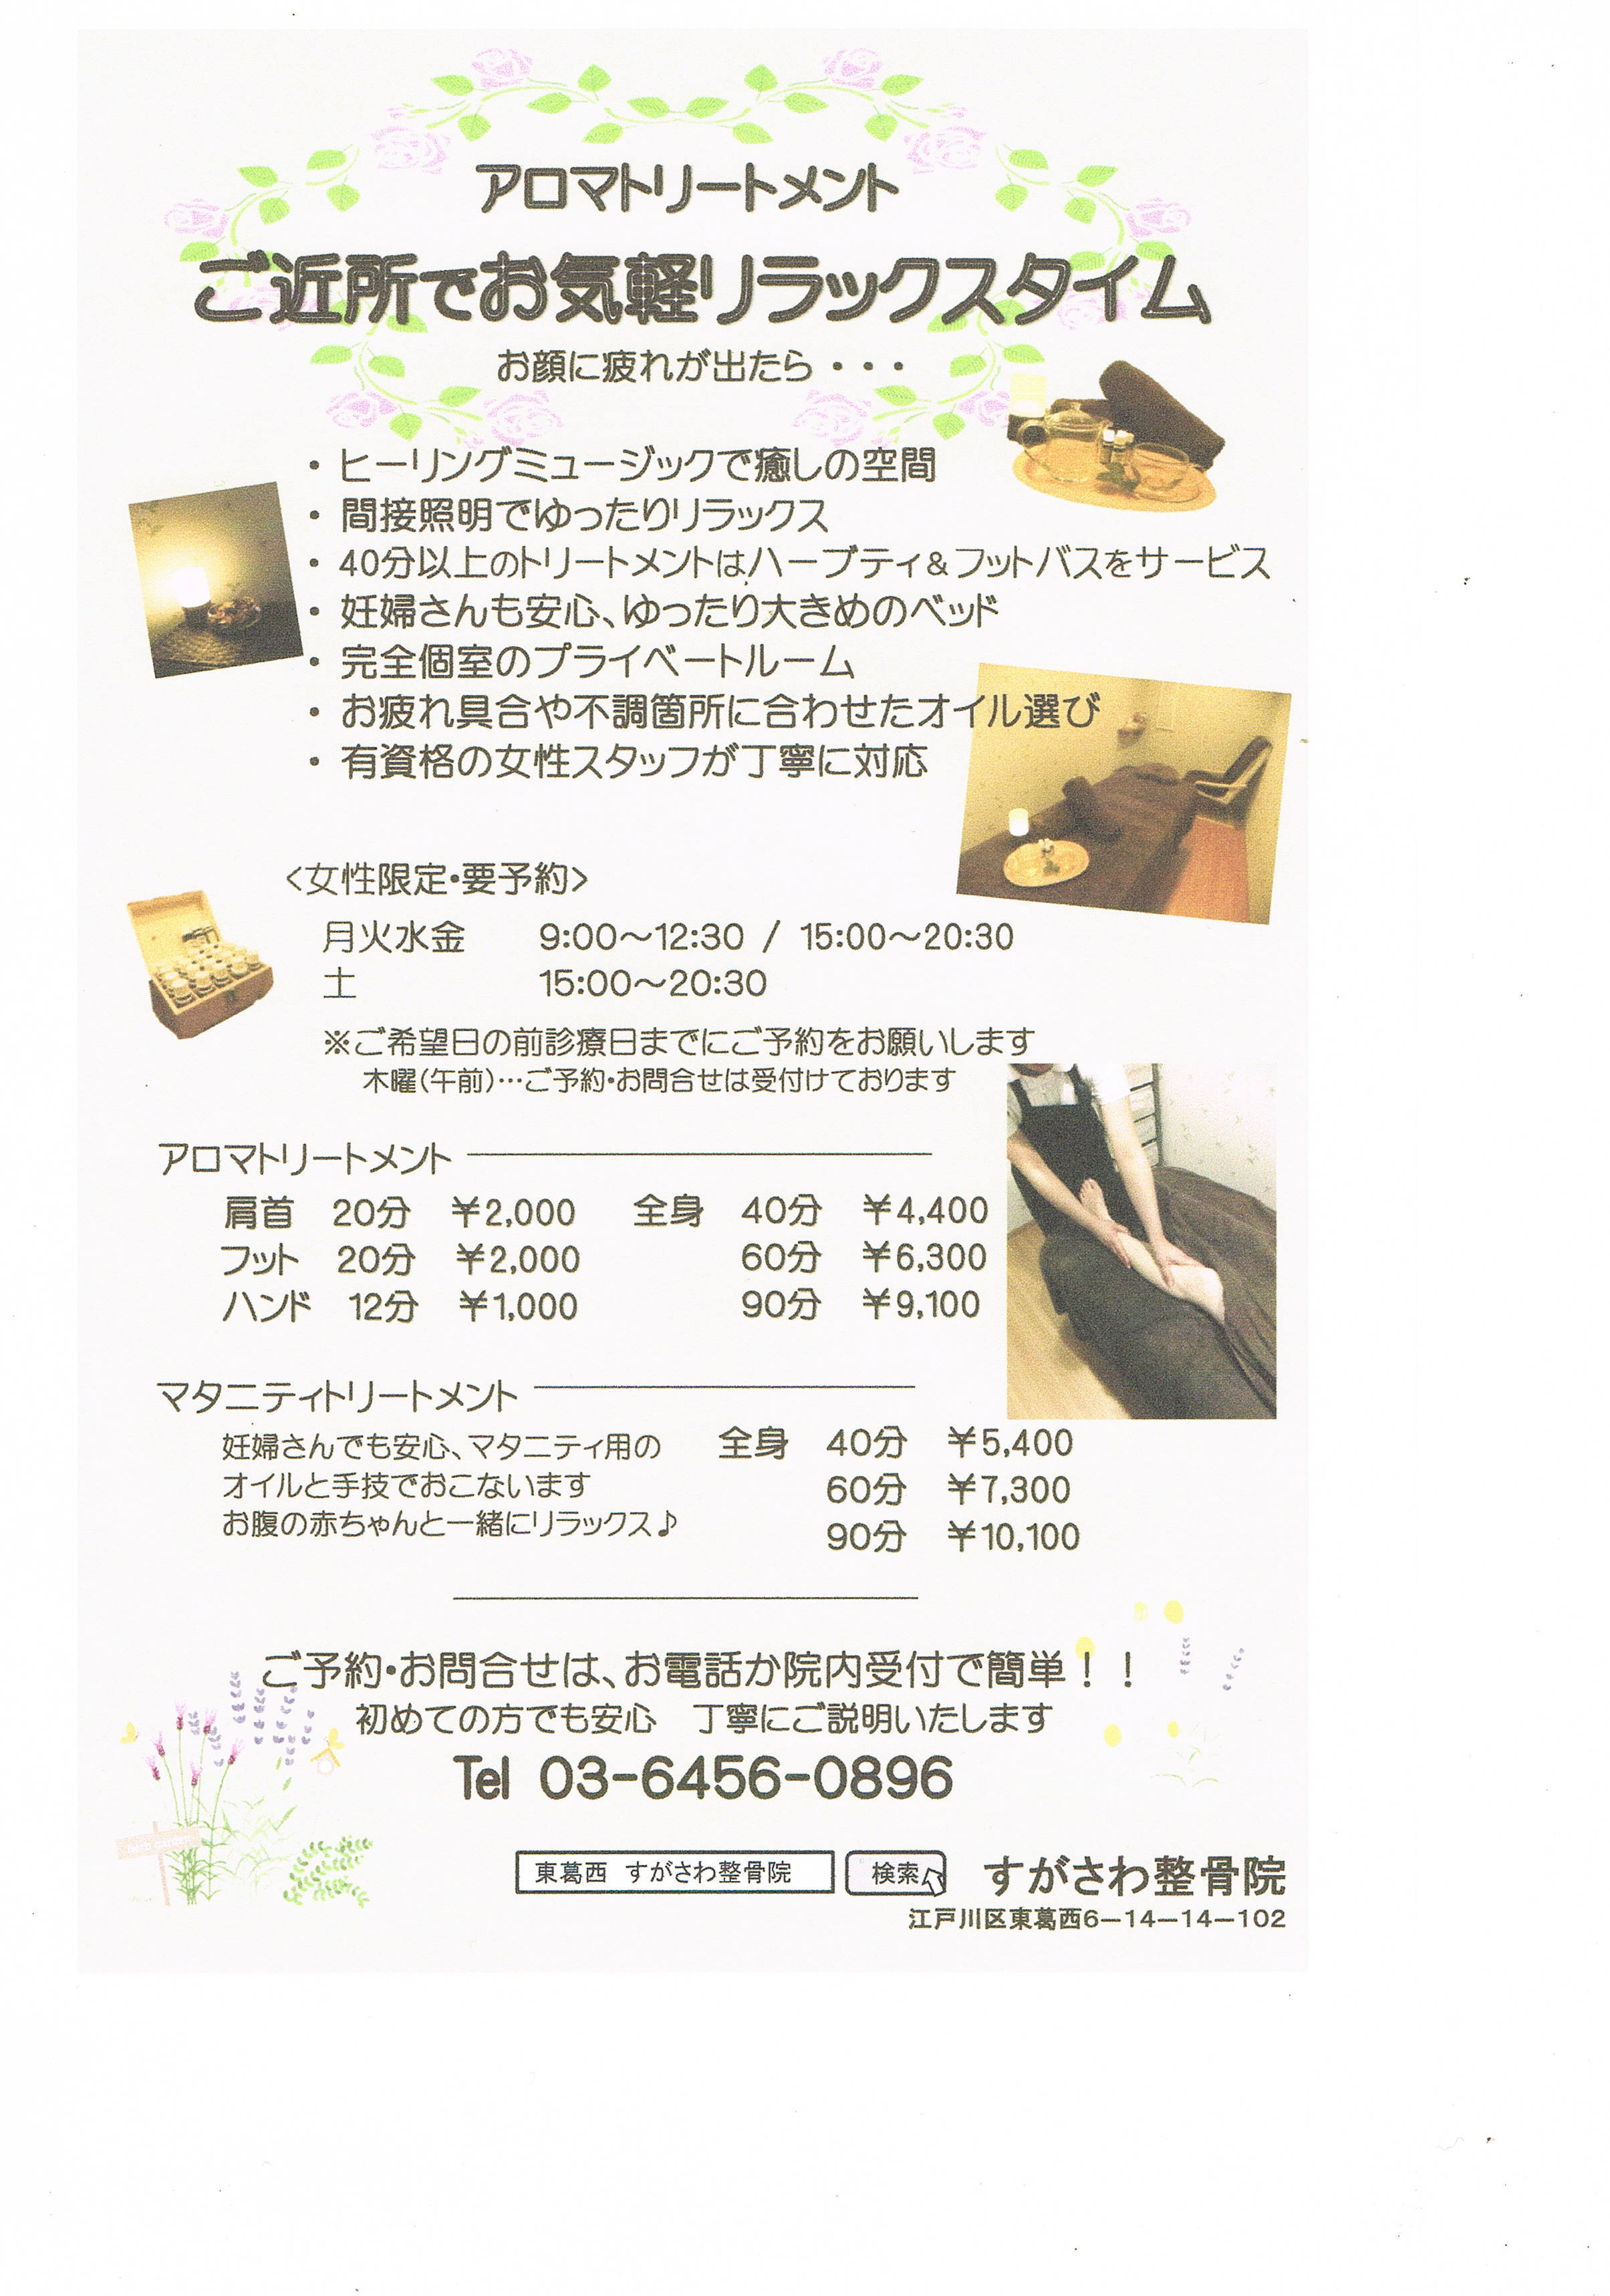 アロマトリートメント
ご近所でお気軽リラックスタイム
お顔に疲れが出たら・・・
・ヒーリングミュージックで癒しの空間
・間接照明でゆったりリラックス
・40分以上のトリートメントはハーブティ＆フットバスをサービス
・妊婦さんも安心、ゆったり大きめのベッド
・完全個室のプライベートルーム
・お疲れ具合や不調箇所に合わせたオイル選び
・有資格の女性スタッフが丁寧に対応
<女性限定・要予約>
月火水金　9:00～12:30 / 15:00～20:30
土　15:00～20:30
※ご希望日の前診療日までにご予約をお願いします
木曜(午前)…ご予約・お問合せは受付けております
アロマトリートメント
肩首　20分　￥2,000　全身　40分　￥4,400
フット　20分　￥2,000　60分　￥6,300
ハンド　12分　￥1,000　90分　￥9,100
マタニティトリートメント
妊婦さんでも安心、マタニティ用の　全身　40分　￥5,400
オイルと手技でおこないます　60分　￥7,300
お腹の赤ちゃんと一緒にリラックス♪　90分　￥10,100
ご予約・お問合せは、お電話か院内受付で簡単！！
初めての方でも安心　丁寧にご説明いたします
Tel 03-6456-0896
東葛西　すがさわ整骨院　検索　すがさわ整骨院
江戸川区東葛西6－14－14－102